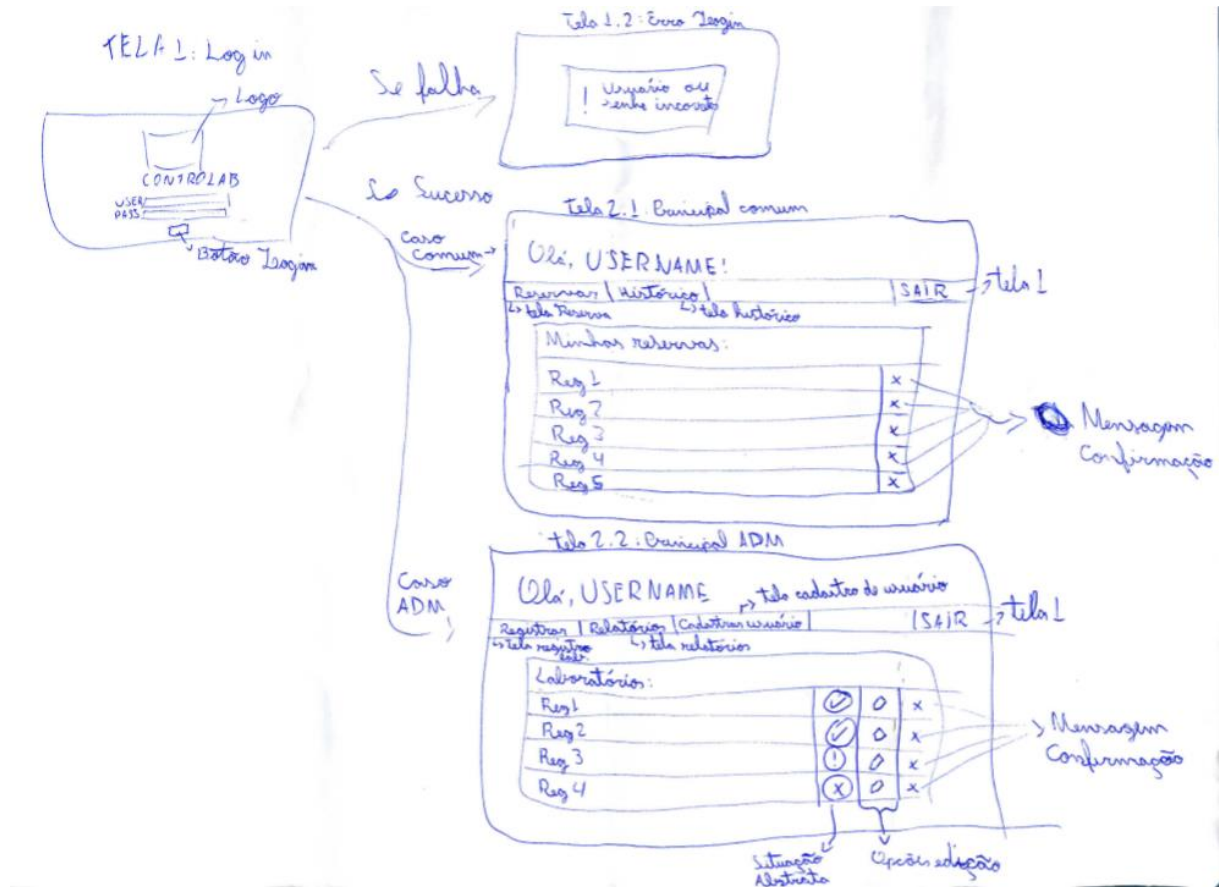 TELA 1: Login
Logo
CONTROLAB
USER
PASS
Botão Login
Se falha
Tela 1.2: Erro Login
! Usuário ou
senha incorreto
Se Sucesso
Caso
Comum
Tela 2.1. Principal comum
Olá, USERNAME!
Reservar | Histórico | SAIR
tela 1
tela Reserva
tela histórico
Minhas reservas:
Reg 1 x
Reg 2 x
Reg 3 x
Reg 4 x
Reg 5 x
Mensagem
Confirmação
Caso
ADM
tela 2.2. Principal ADM
Olá, USERNAME
tela cadastro de usuário
Registrar | Relatórios | Cadastrar usuário | SAIR
tela 1
tela registro
lab.
tela relatórios
Laboratórios:
Reg 1 ✓ 0 x
Reg 2 ✓ 0 x
Reg 3 ! 0 x
Reg 4 x 0 x
Mensagem
Confirmação
Situação
Abstrata
Opções edição